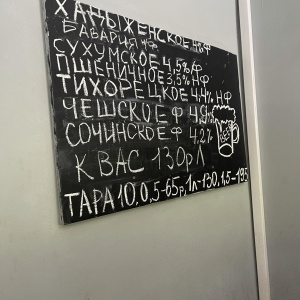 ХАНЫЖЕНСКОЕ 4% Ф
БАВАРИЯ НФ
СУХУМСКОЕ 4,5% Ф
ПШЕНИЧНОЕ 3,5% НФ
ТИХОРЕЦКОЕ 4,4% НФ
ЧЕШСКОЕ Ф
СОЧИНСКОЕ Ф 4.2%
КВАС 130р Л
ТАРА 10, 0,5-65р, 1л-130, 1,5-195